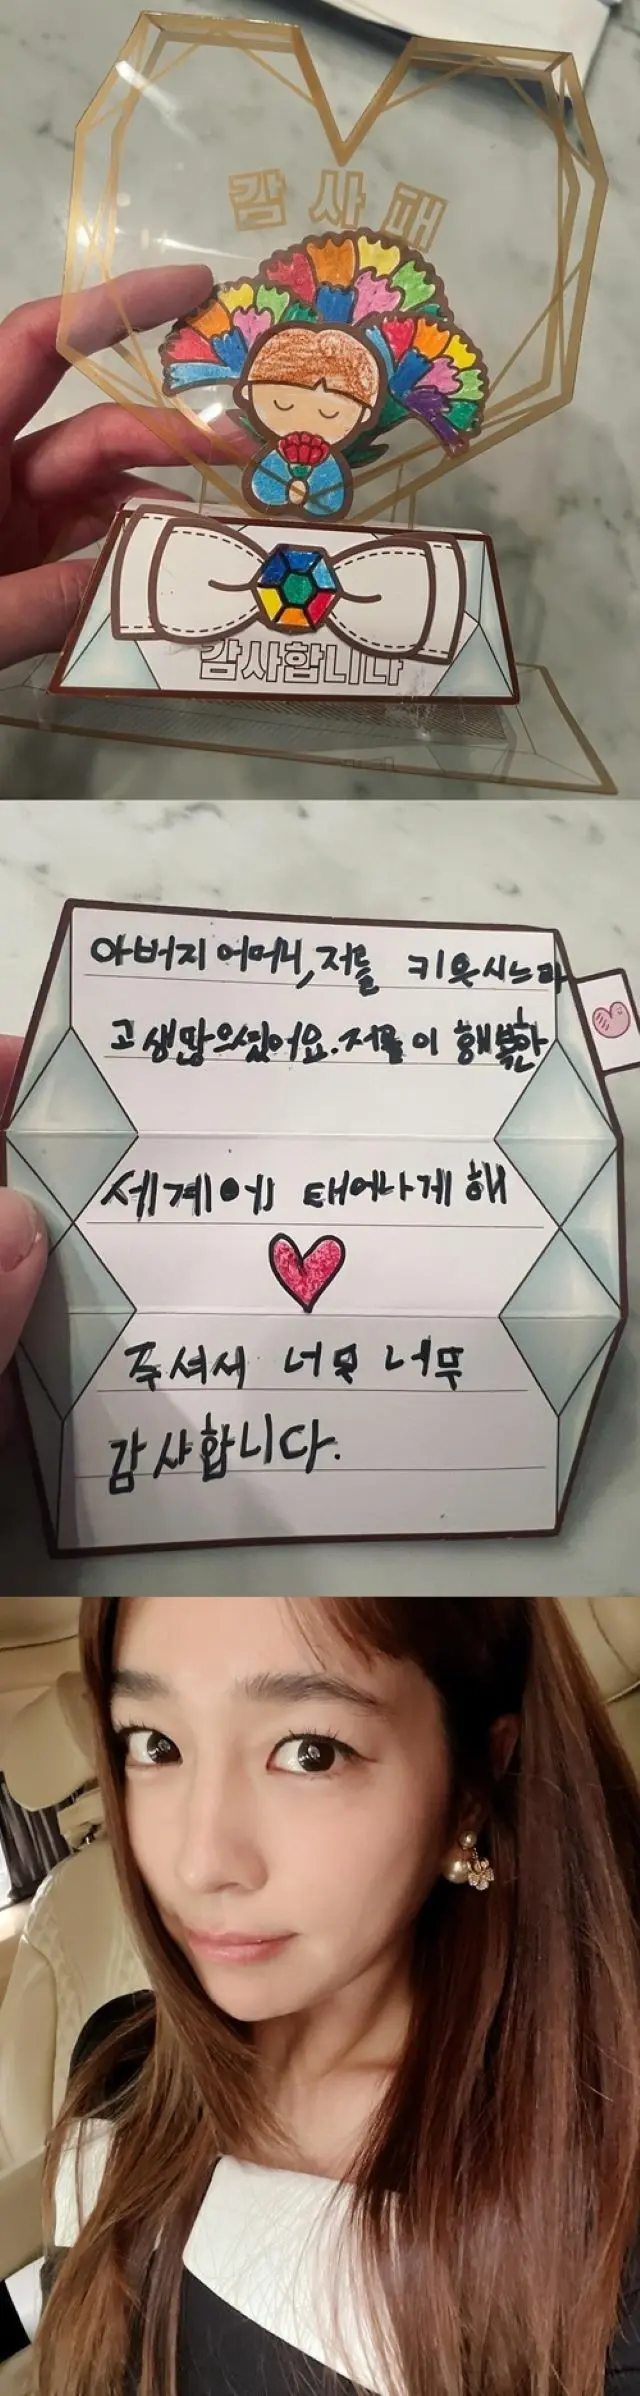 감사패
감사합니다
아버지 어머니, 저를 키우시느라
고생많으셨어요. 저를 이 행복한
세계에 태어나게 해
주셔서 너무 너무
감사합니다.